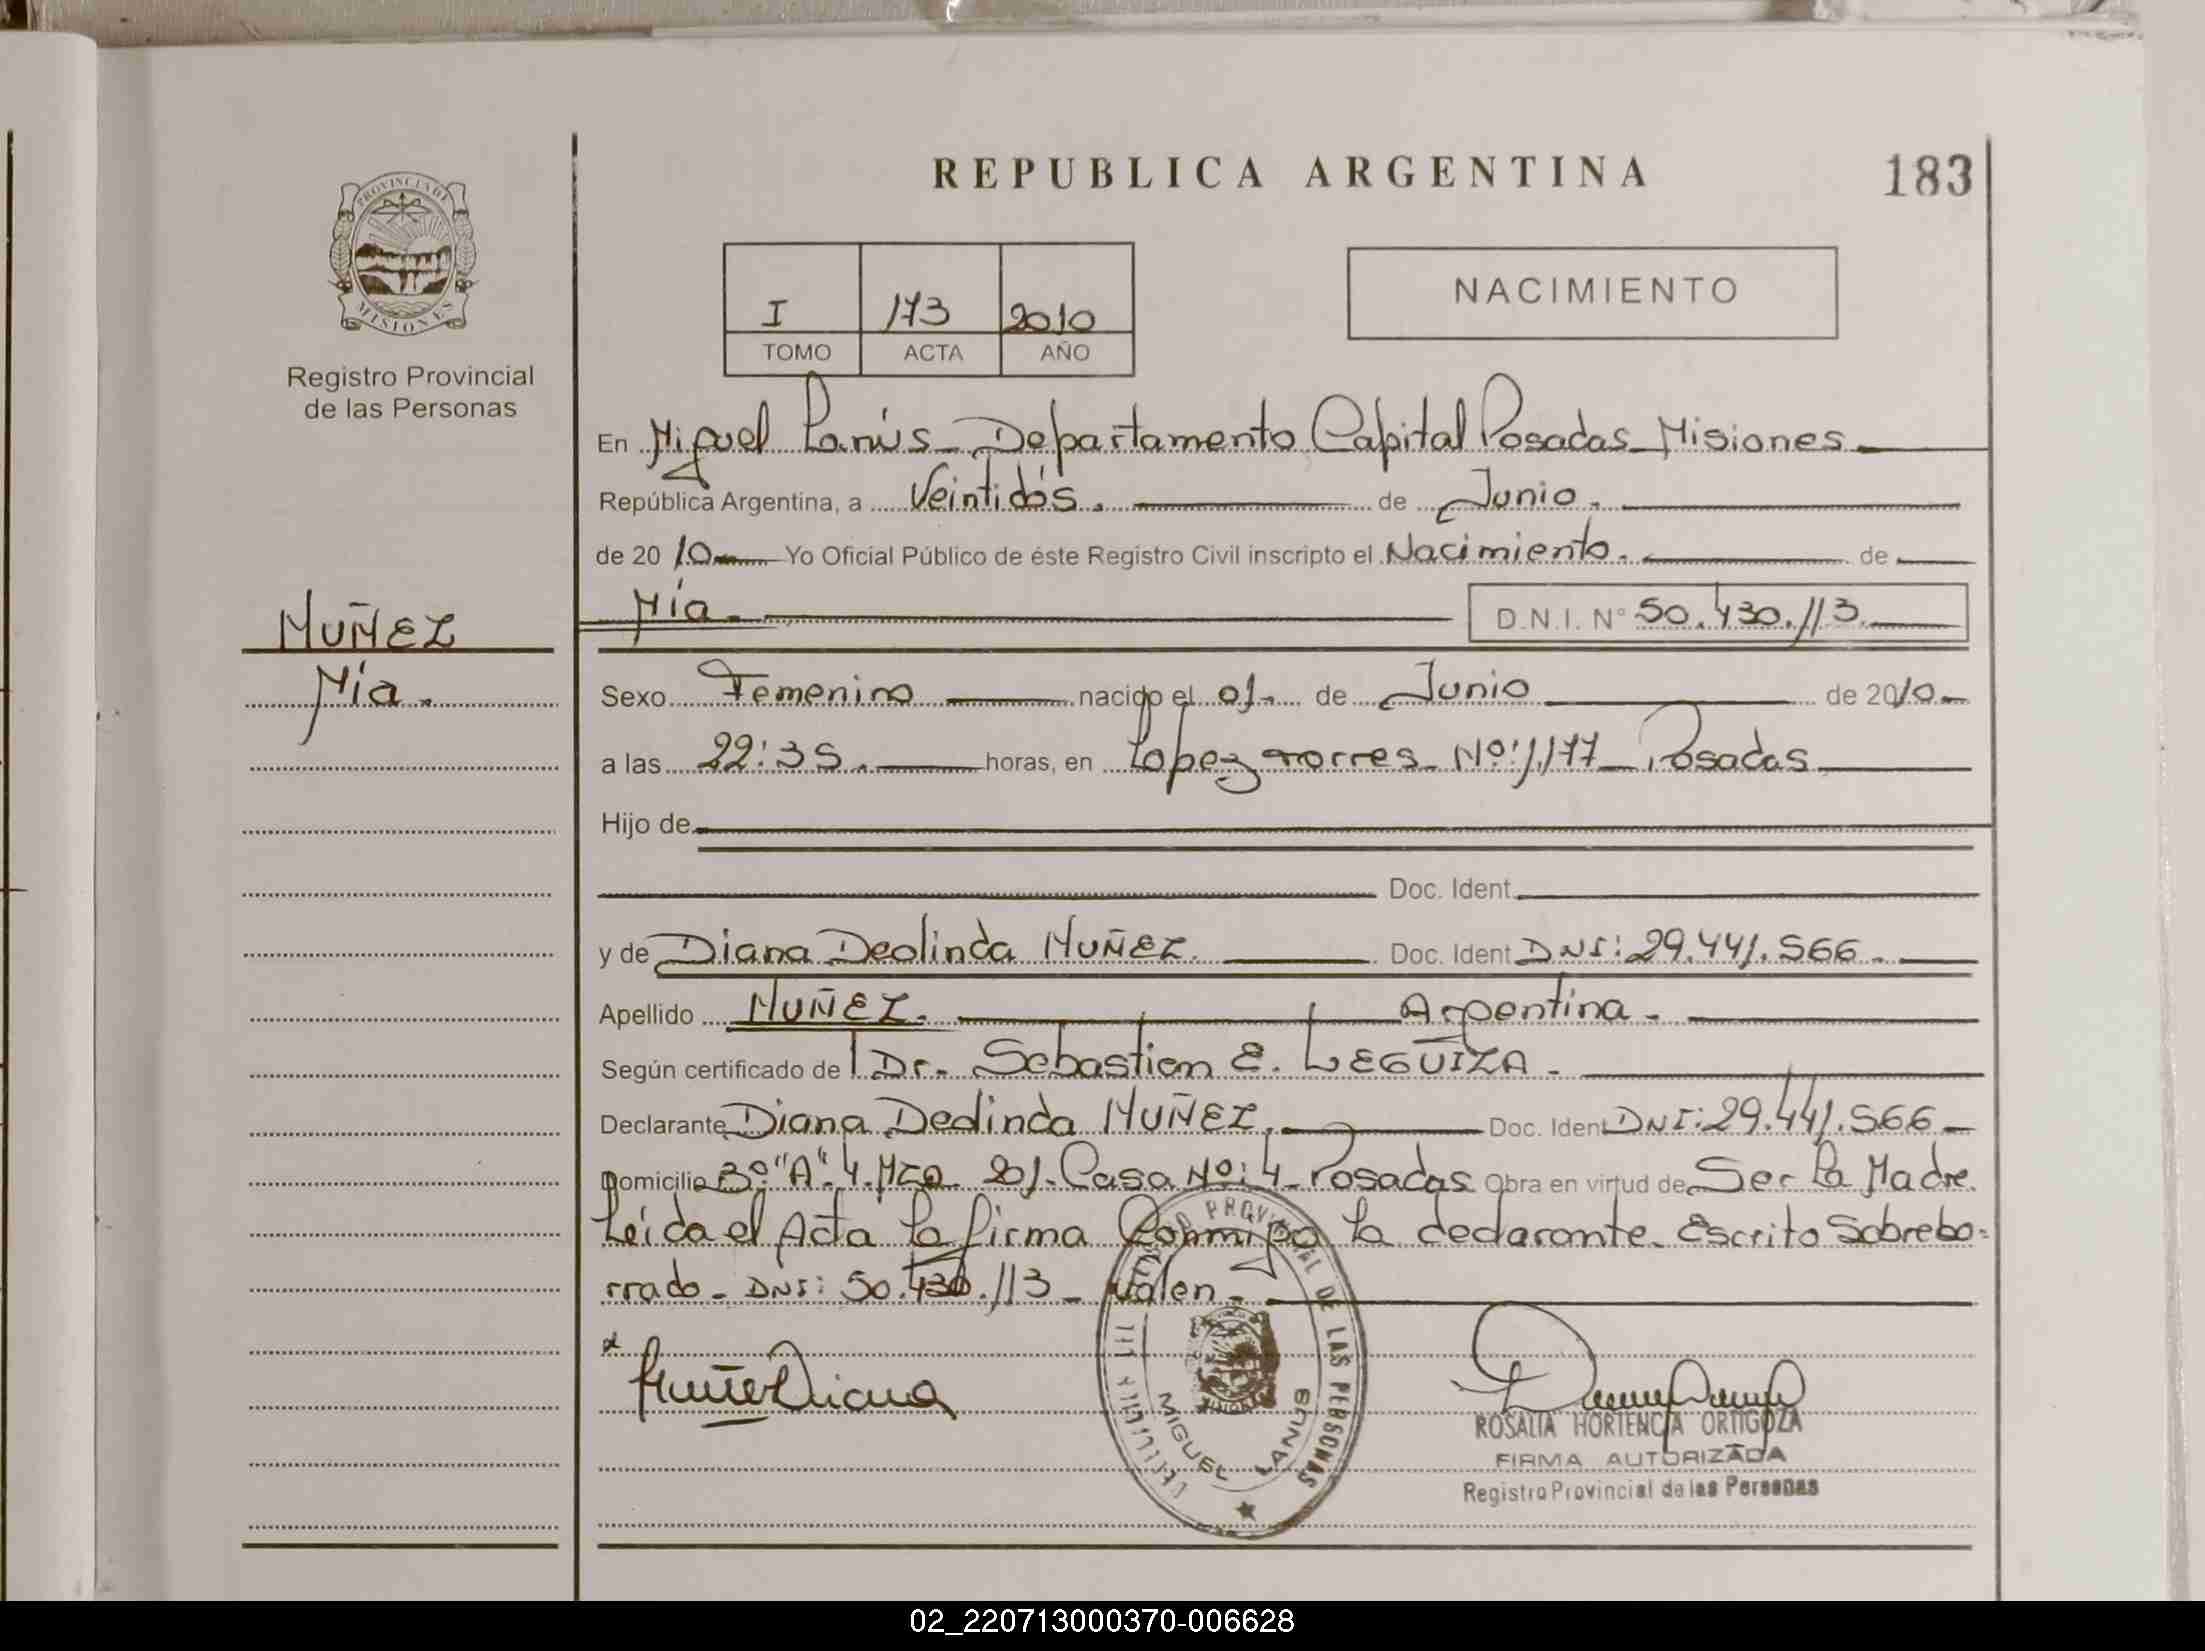 REPUBLICA ARGENTINA
183
PROVINCIA DE
MISIONES
Registro Provincial
de las Personas
I 173 2010
TOMO ACTA AÑO
NACIMIENTO
En Miguel Lanús - Departamento Capital Posadas - Misiones
República Argentina, a Veintidós. de Junio.
de 2010 Yo Oficial Público de éste Registro Civil inscripto el Nacimiento. de
Mía. D.N.I. N° 50.430.113
MUÑEZ
Mía.
Sexo Femenino nacido el 01. de Junio de 2010
a las 22:35. horas, en Lopez Torres - Nº: 1.177 - Posadas
Hijo de
Doc. Ident.
y de Diana Deolinda MUÑEZ. Doc. Ident DNI: 29.441.566.
Apellido MUÑEZ. Argentina.
Según certificado de Dr. Sebastian E. LEGUIZA.
Declarante Diana Deolinda MUÑEZ. Doc. Ident DNI: 29.441.566
Domicilio 3º "A". 4. Mza. 201. Casa Nº: 4 - Posadas Obra en virtud de Ser La Madre.
Leída el Acta La firma Conmigo La declarante. Escrito Sobrebo=
rrado - DNI: 50.430.113 - Valen -
Muñez Diana
PROVINCIAL DE LAS PERSONAS
MIGUEL LANUS
ROSALIA HORTENCIA ORTIGOZA
FIRMA AUTORIZADA
Registro Provincial de las Personas
02_220713000370-006628